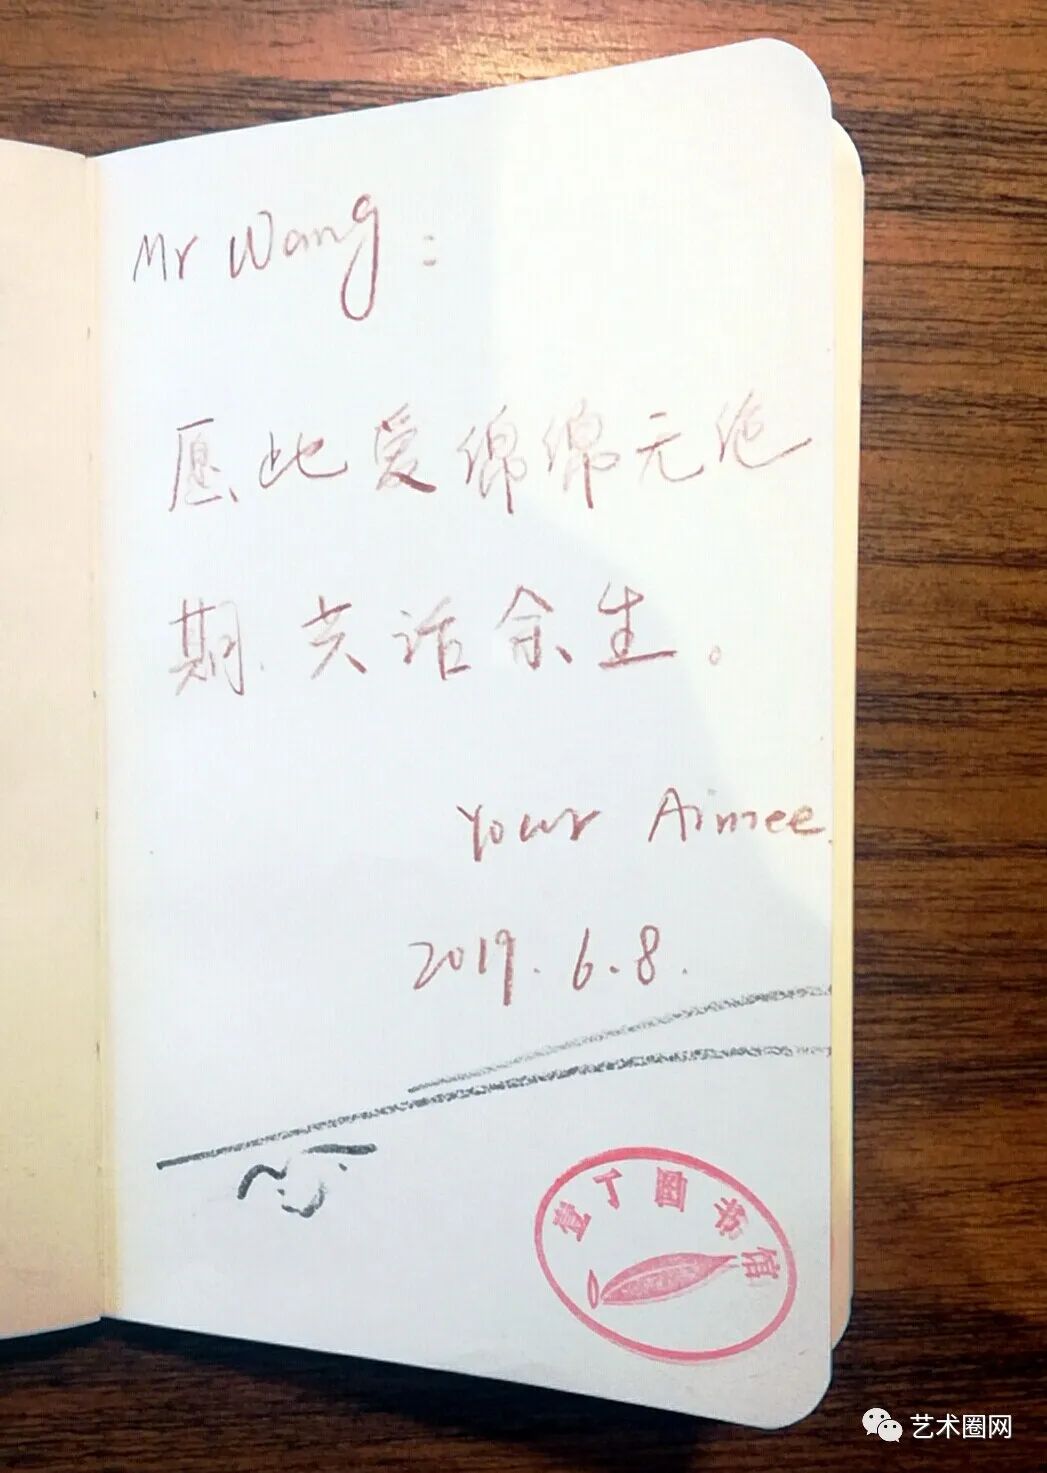 Mr Wang:
愿此爱绵绵无绝
期.共话余生。
Your Aimee
2019.6.8.
壹丁图书馆
艺术圈网